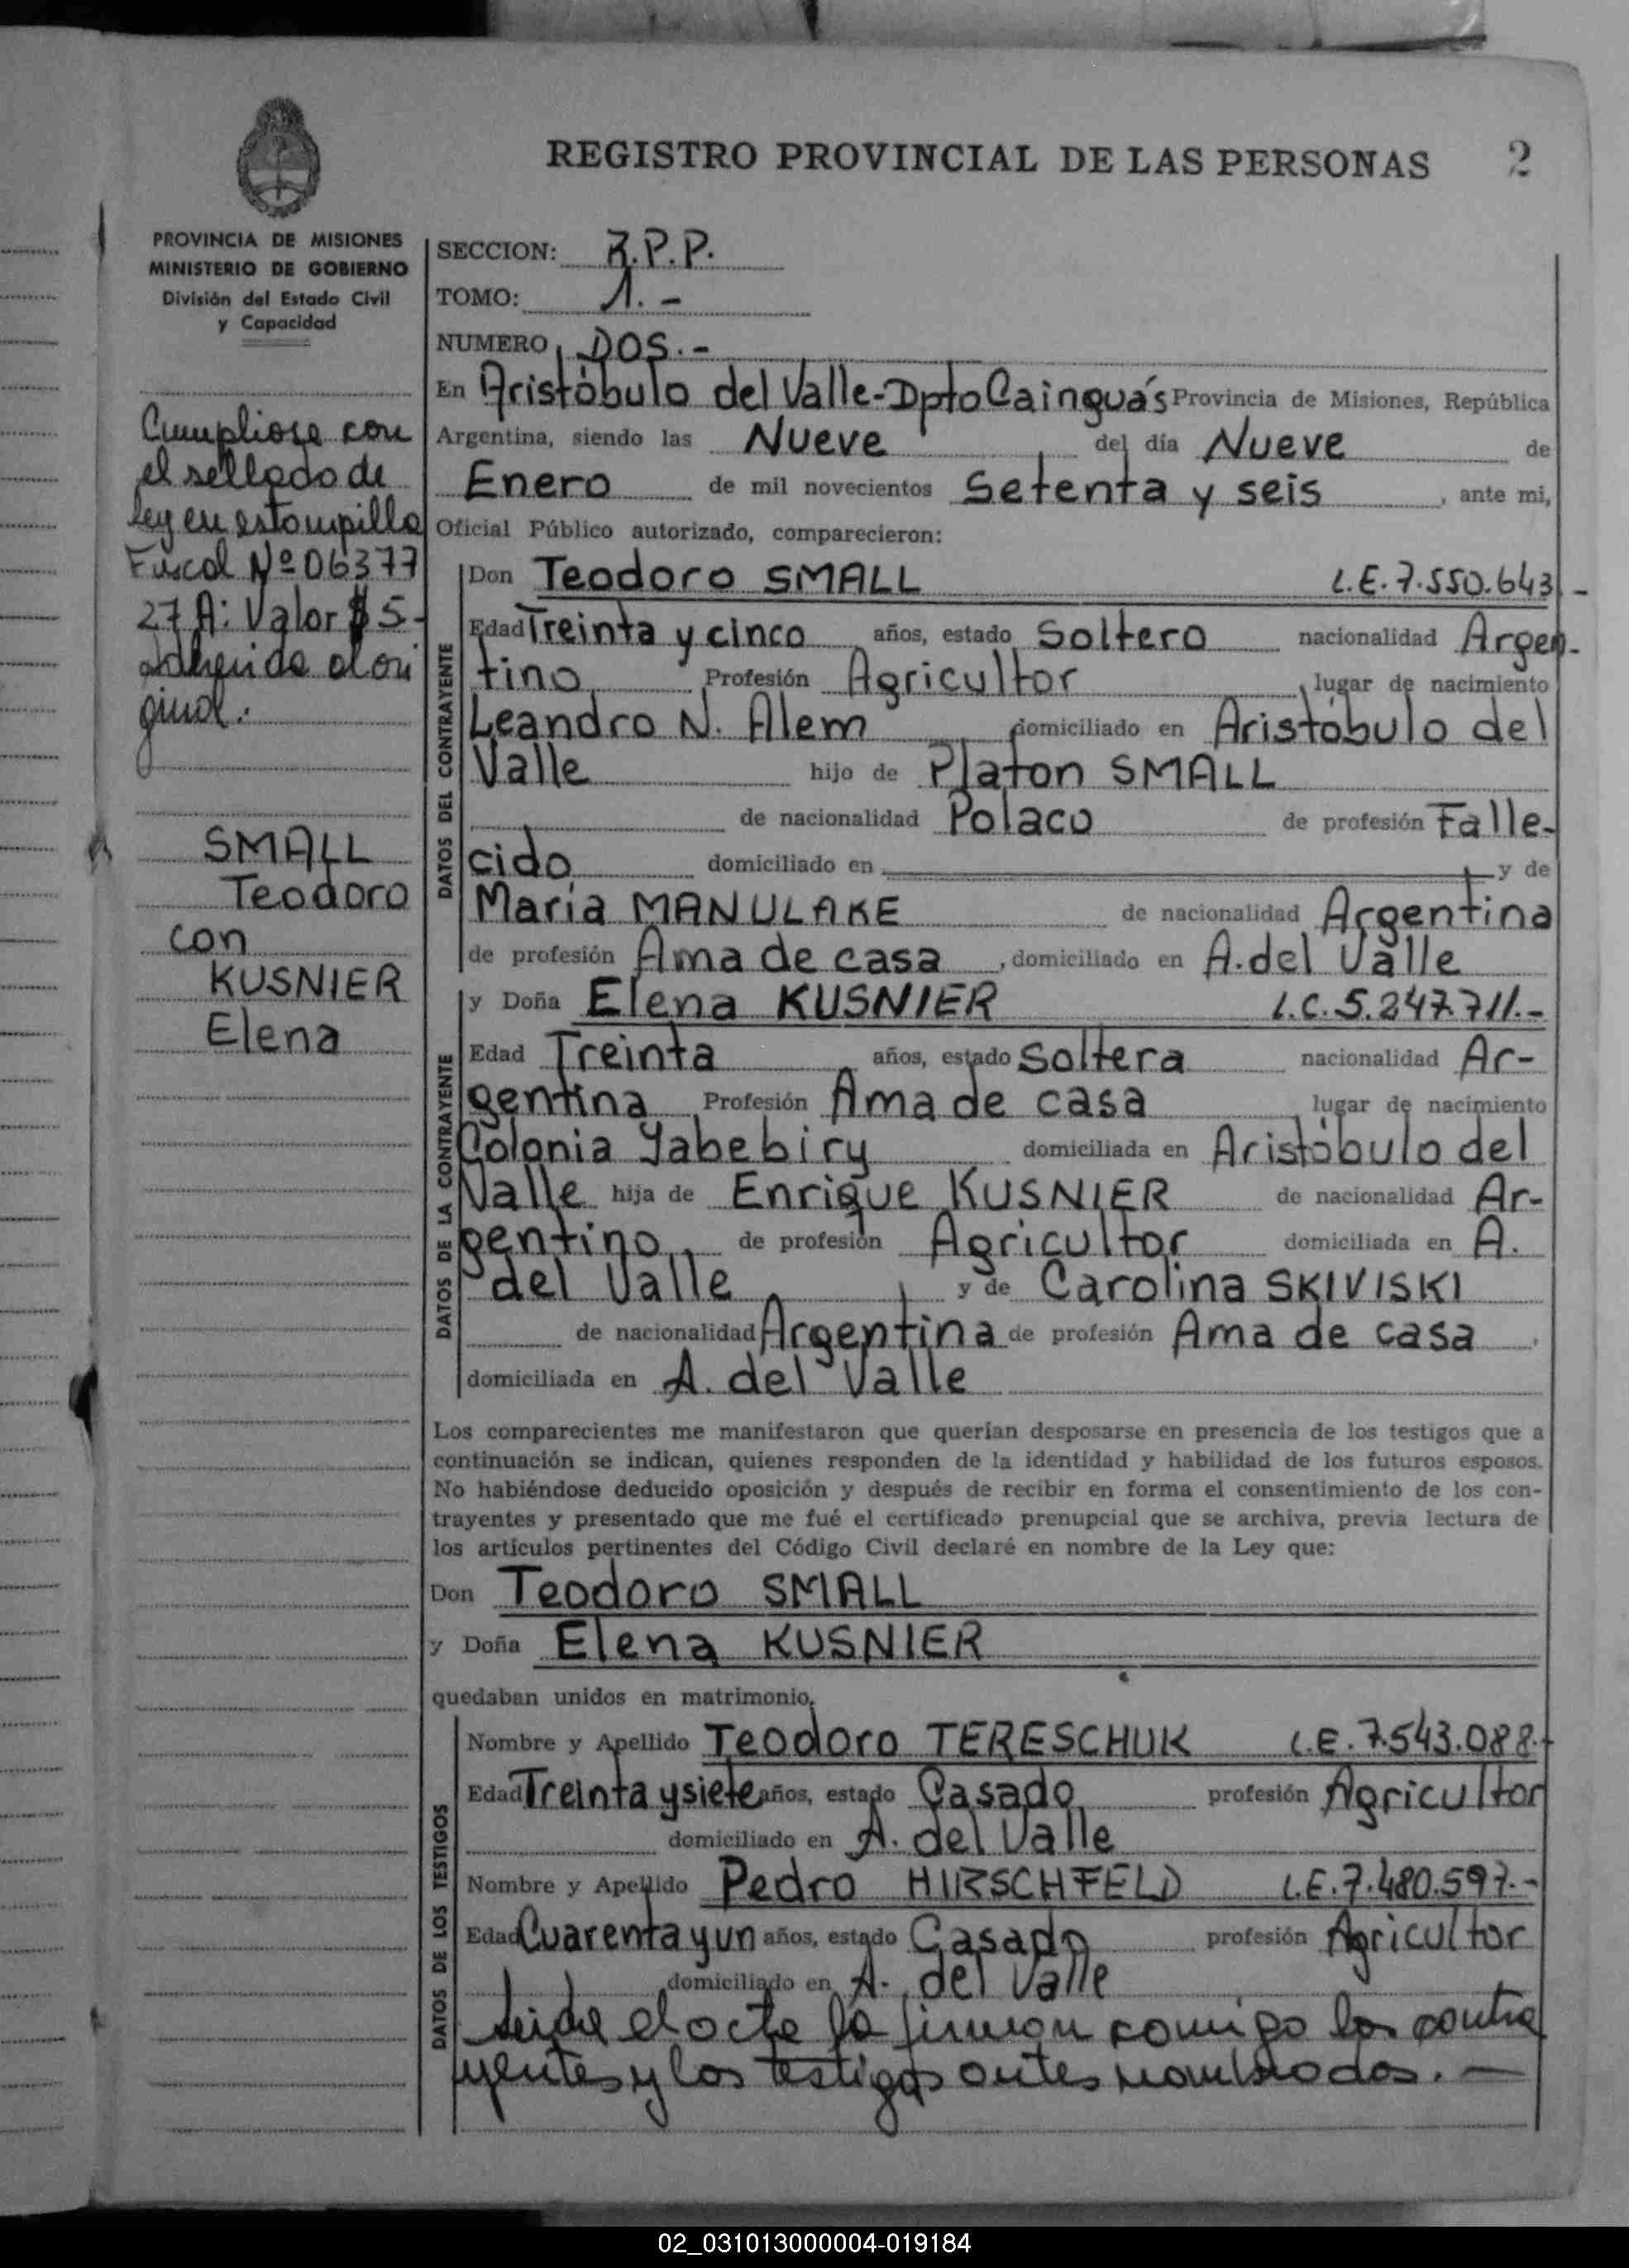 REGISTRO PROVINCIAL DE LAS PERSONAS 2
PROVINCIA DE MISIONES
MINISTERIO DE GOBIERNO
División del Estado Civil
y Capacidad
Cumpliose con
el sellado de
ley en estampilla
Fiscal Nº 06377
27 A: Valor $ 5-
adherida al ori
ginal.
SMALL
Teodoro
con
KUSNIER
Elena
SECCION: R.P.P.
TOMO: 1.-
NUMERO DOS.-
En Aristóbulo del Valle-Dpto Cainguás Provincia de Misiones, República
Argentina, siendo las Nueve del día Nueve de
Enero de mil novecientos Setenta y seis, ante mi,
Oficial Público autorizado, comparecieron:
DATOS DEL CONTRAYENTE
Don Teodoro SMALL L.E.7.550.643.-
Edad Treinta y cinco años, estado Soltero nacionalidad Argen-
tino Profesión Agricultor, lugar de nacimiento
Leandro N. Alem domiciliado en Aristóbulo del
Valle hijo de Platon SMALL
de nacionalidad Polaco de profesión Falle-
cido domiciliado en y de
María MANULAKE de nacionalidad Argentina
de profesión Ama de casa, domiciliado en A.del Valle
DATOS DE LA CONTRAYENTE
y Doña Elena KUSNIER L.C.5.247.711.-
Edad Treinta años, estado Soltera nacionalidad Ar-
gentina Profesión Ama de casa, lugar de nacimiento
Colonia Yabebiry domiciliada en Aristóbulo del
Valle hija de Enrique KUSNIER de nacionalidad Ar-
gentino, de profesión Agricultor domiciliada en A.
del Valle y de Carolina SKIVISKI
de nacionalidad Argentina de profesión Ama de casa,
domiciliada en A. del Valle
Los comparecientes me manifestaron que querían desposarse en presencia de los testigos que a
continuación se indican, quienes responden de la identidad y habilidad de los futuros esposos.
No habiéndose deducido oposición y después de recibir en forma el consentimiento de los con-
trayentes y presentado que me fué el certificado prenupcial que se archiva, previa lectura de
los artículos pertinentes del Código Civil declaré en nombre de la Ley que:
Don Teodoro SMALL
y Doña Elena KUSNIER
quedaban unidos en matrimonio.
DATOS DE LOS TESTIGOS
Nombre y Apellido Teodoro TERESCHUK L.E.7.543.088.-
Edad Treinta y siete años, estado Casado profesión Agricultor
domiciliado en A. del Valle
Nombre y Apellido Pedro HIRSCHFELD L.E.7.480.597.-
Edad Cuarenta y un años, estado Casado profesión Agricultor
domiciliado en A. del Valle
Leida el acta la firman comigo los contra
yentes y los testigos antes nombrados.—
02_031013000004-019184